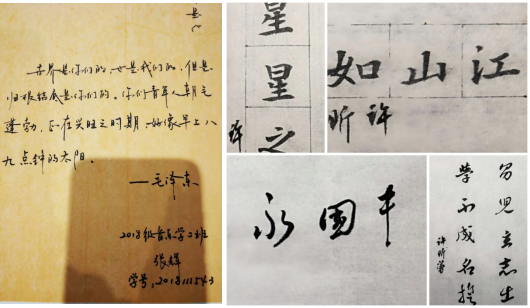 世界是你们的，也是我们的，但是
归根结底是你们的。你们青年人朝气
蓬勃，正在兴旺之时期，好像早上八
九点钟的太阳。
——毛泽东
2018级音乐学二班
张辉
学号：2018111543
星
星
之
许
江山如
许昕
永国丰
男儿立志出
学不成名誓
许昕书